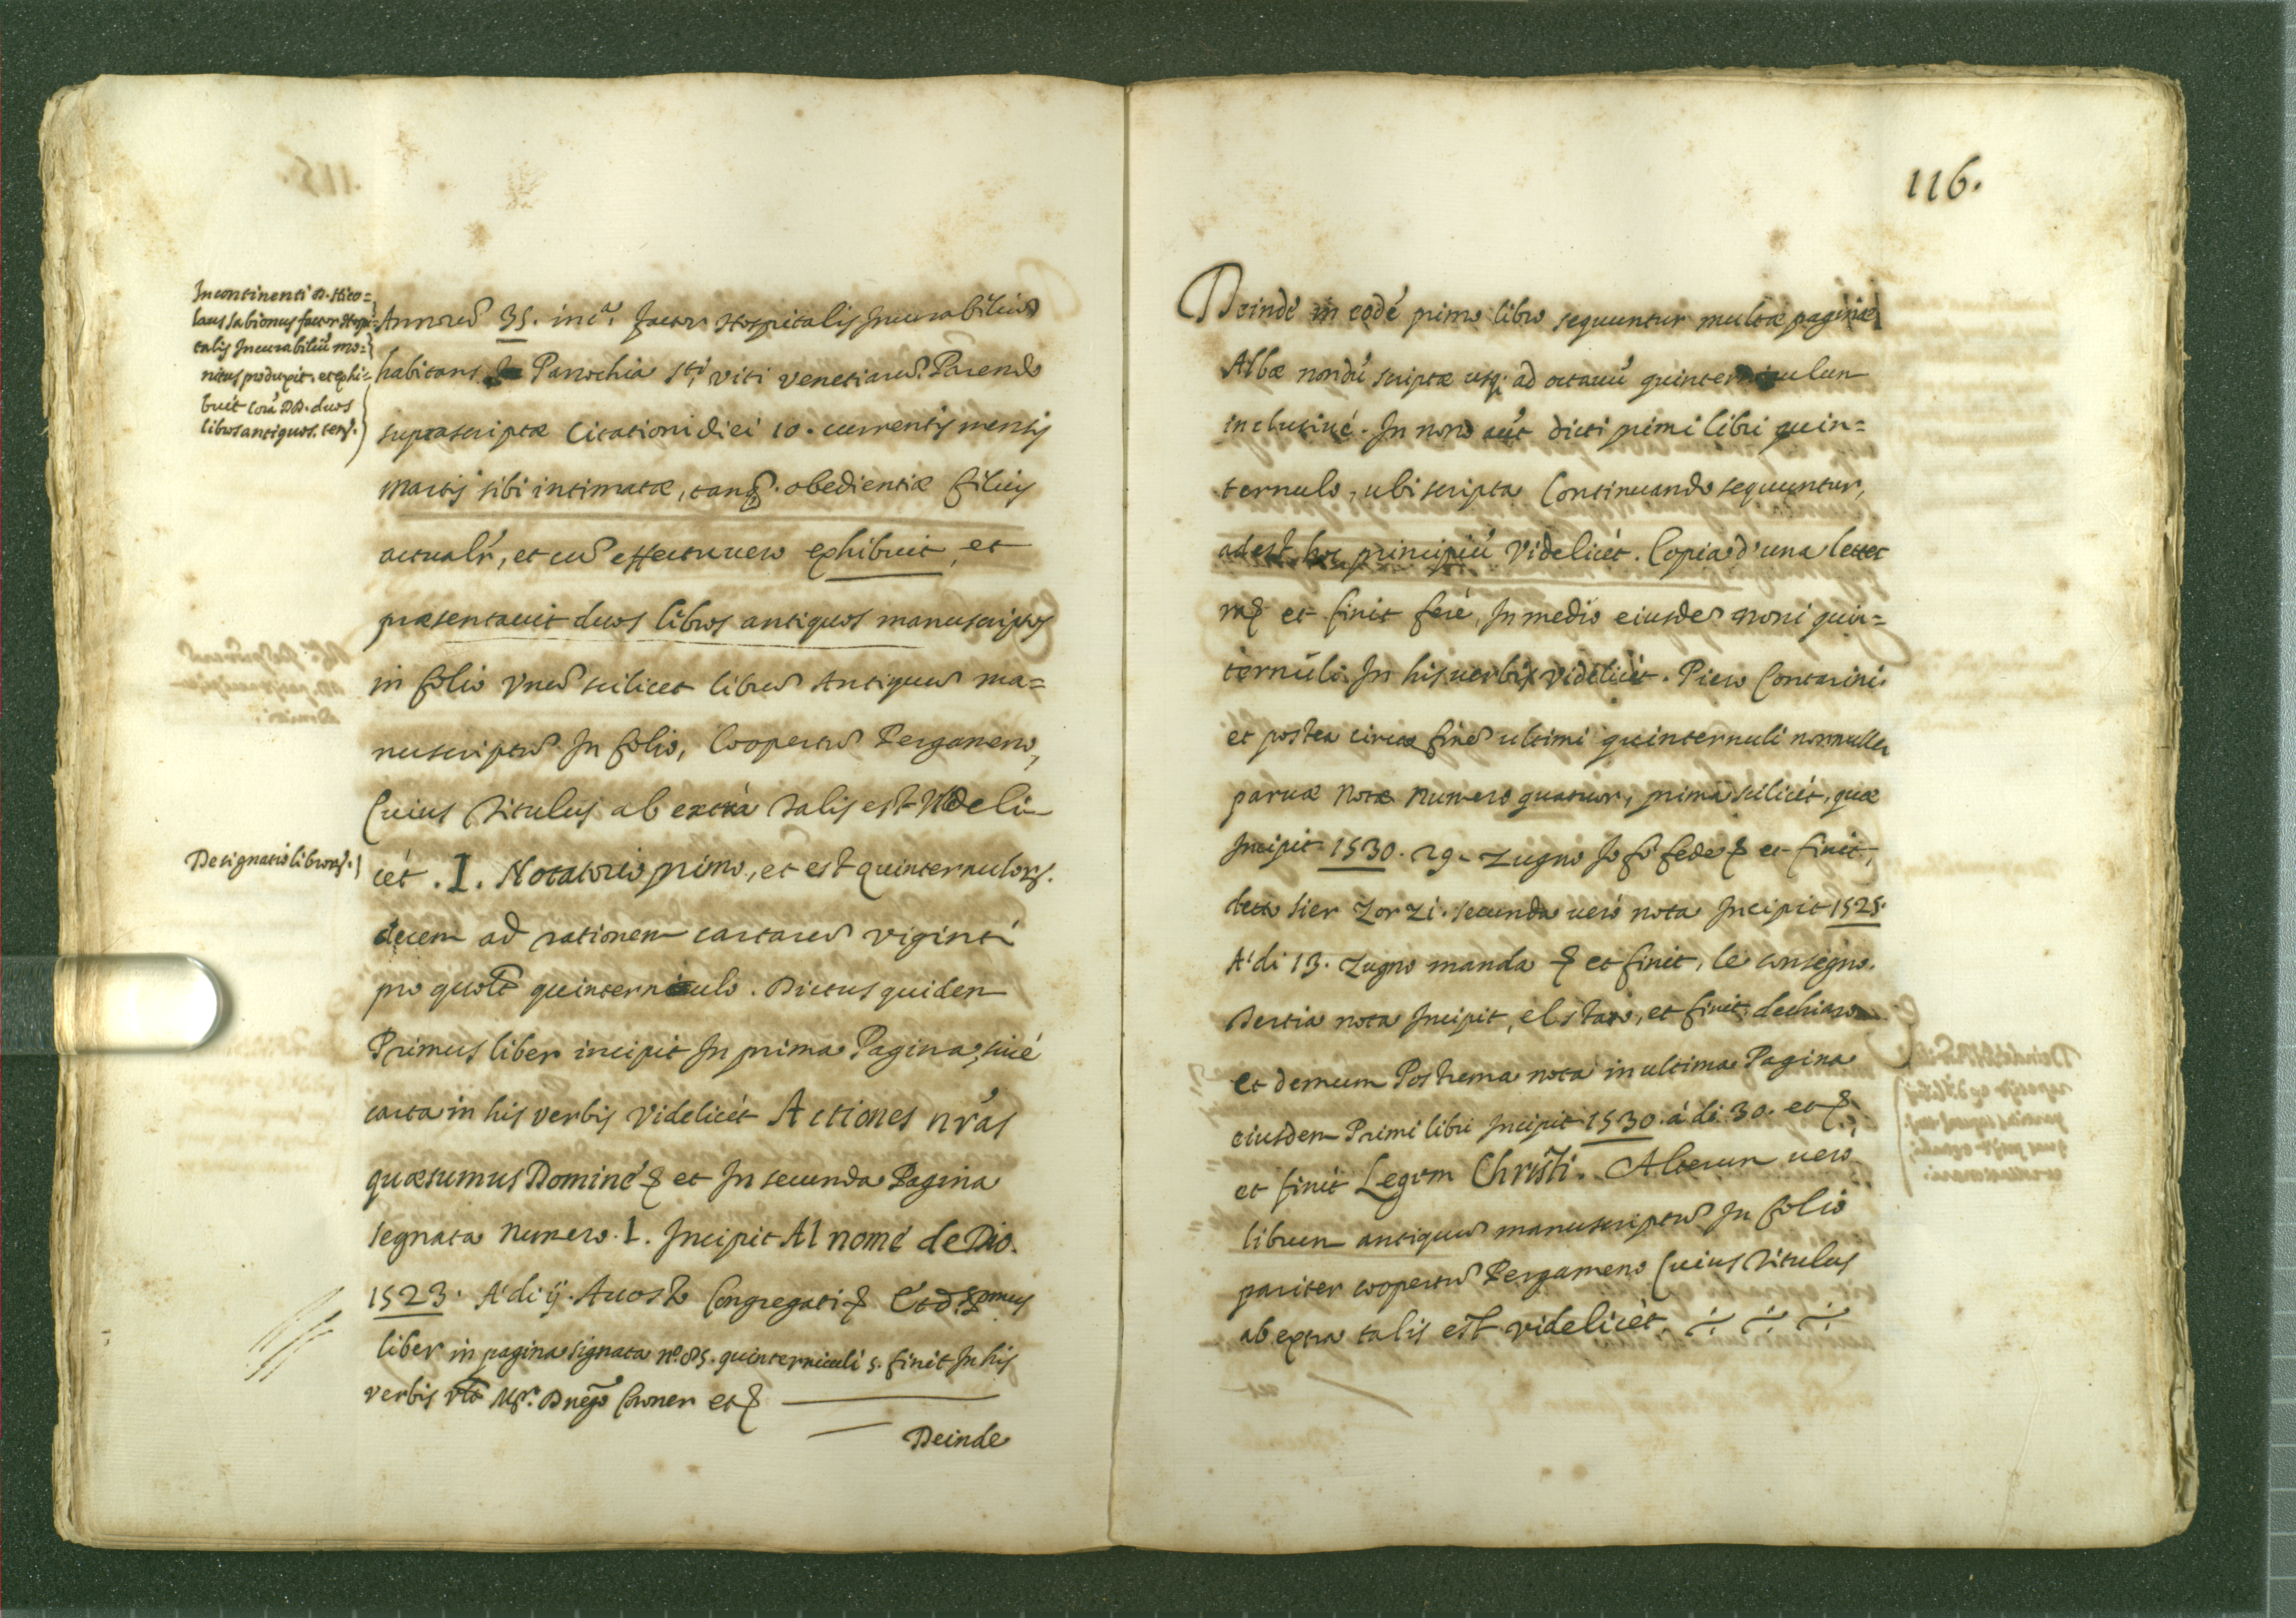 Incontinenti D. Nico=
laus Sabionus factor Hospi=
talis Incurabiliũ mo=
nitus produxit, et exhi=
buit Corã DD. duos
libros antiquos. ten.
Annorũ 35. in cª. factor Hospitalis Incurabiliũ
habitans Parochia Sti Viti Venetiarũ. Parendo
suprascriptæ Citationi diei 10. currentis mensis
Martij sibi intimatæ, tanq. obedientiæ filius
actualr, et cũ effectu vero exhibuit, et
præsentauit duos libros antiquos manuscriptos
in folio Vnũ scilicet librũ Antiquũ ma=
nuscriptũ In folio, Coopertũ Pergameno,
Cuius Titulus ab extrà talis est Videli
Designatio libror.
cét . I. Notatorio primo, et est quinternulor.
decem ad rationem cartarũ viginti
pro quolt quinterniculo. Dictus quidem
Primus liber incipit In prima Pagina, siué
carta in his verbis Videlicét Actiones nrãs
quæsumus Dominé & et In secunda Pagina
segnata Numero. 1. Incipit Al nomé de Dio.
1523. A' di ij. Auosto Congregati & Et d. pmus
liber in pagina signata nº. 85. quinterniculi 5. finit In his
verbis vlt Mr. Dnego Corner et &
Deinde
116.
Deindé in eodé primo libro sequuntur multæ paginæ
Albæ nondũ scriptæ usq. ad octauũ quinterniculum
inclusiué. In nono aũt dicti primi libri quin=
ternulo, ubi scripta Continuando sequuntur,
adest hoc principiũ Videlicét. Copia d'una letter
ra & et finit feré, In medio eiusdẽ noni quin=
ternuli In his verbis videlicét. Piero Contarini.
et postea circa finẽ ultimi quinternuli nonnullæ
paruæ Notæ Numero quatuor, prima scilicét, quæ
Incipit 1530. 29. Zugno Io fò fede & et finit,
detto sier Zorzi. Secunda uerò nota Incipit 1525.
A' di 13. Zugno manda & et finit, le consegno.
Tertia nota Incipit, el staro, et finit. dechiaro
et demum Postrema nota in ultima Pagina
eiusdem Primi libri Incipit 1530. á di 30. et &.
et finit Legem Christi. Alterum uero
librum antiquũ manuscriptũ In folio
pariter coopertũ Pergameno Cuius Titulus
ab extra talis est videlicét